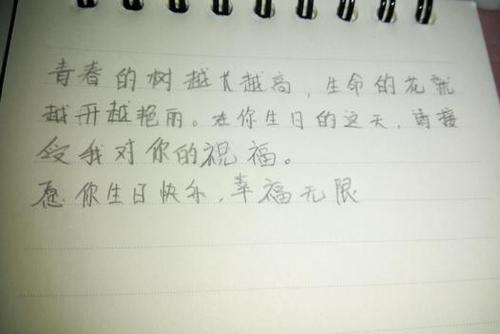 青春的树越长越高，生命的花就
越开越艳丽。在你生日的这天，请接
受我对你的祝福。
愿你生日快乐，幸福无限